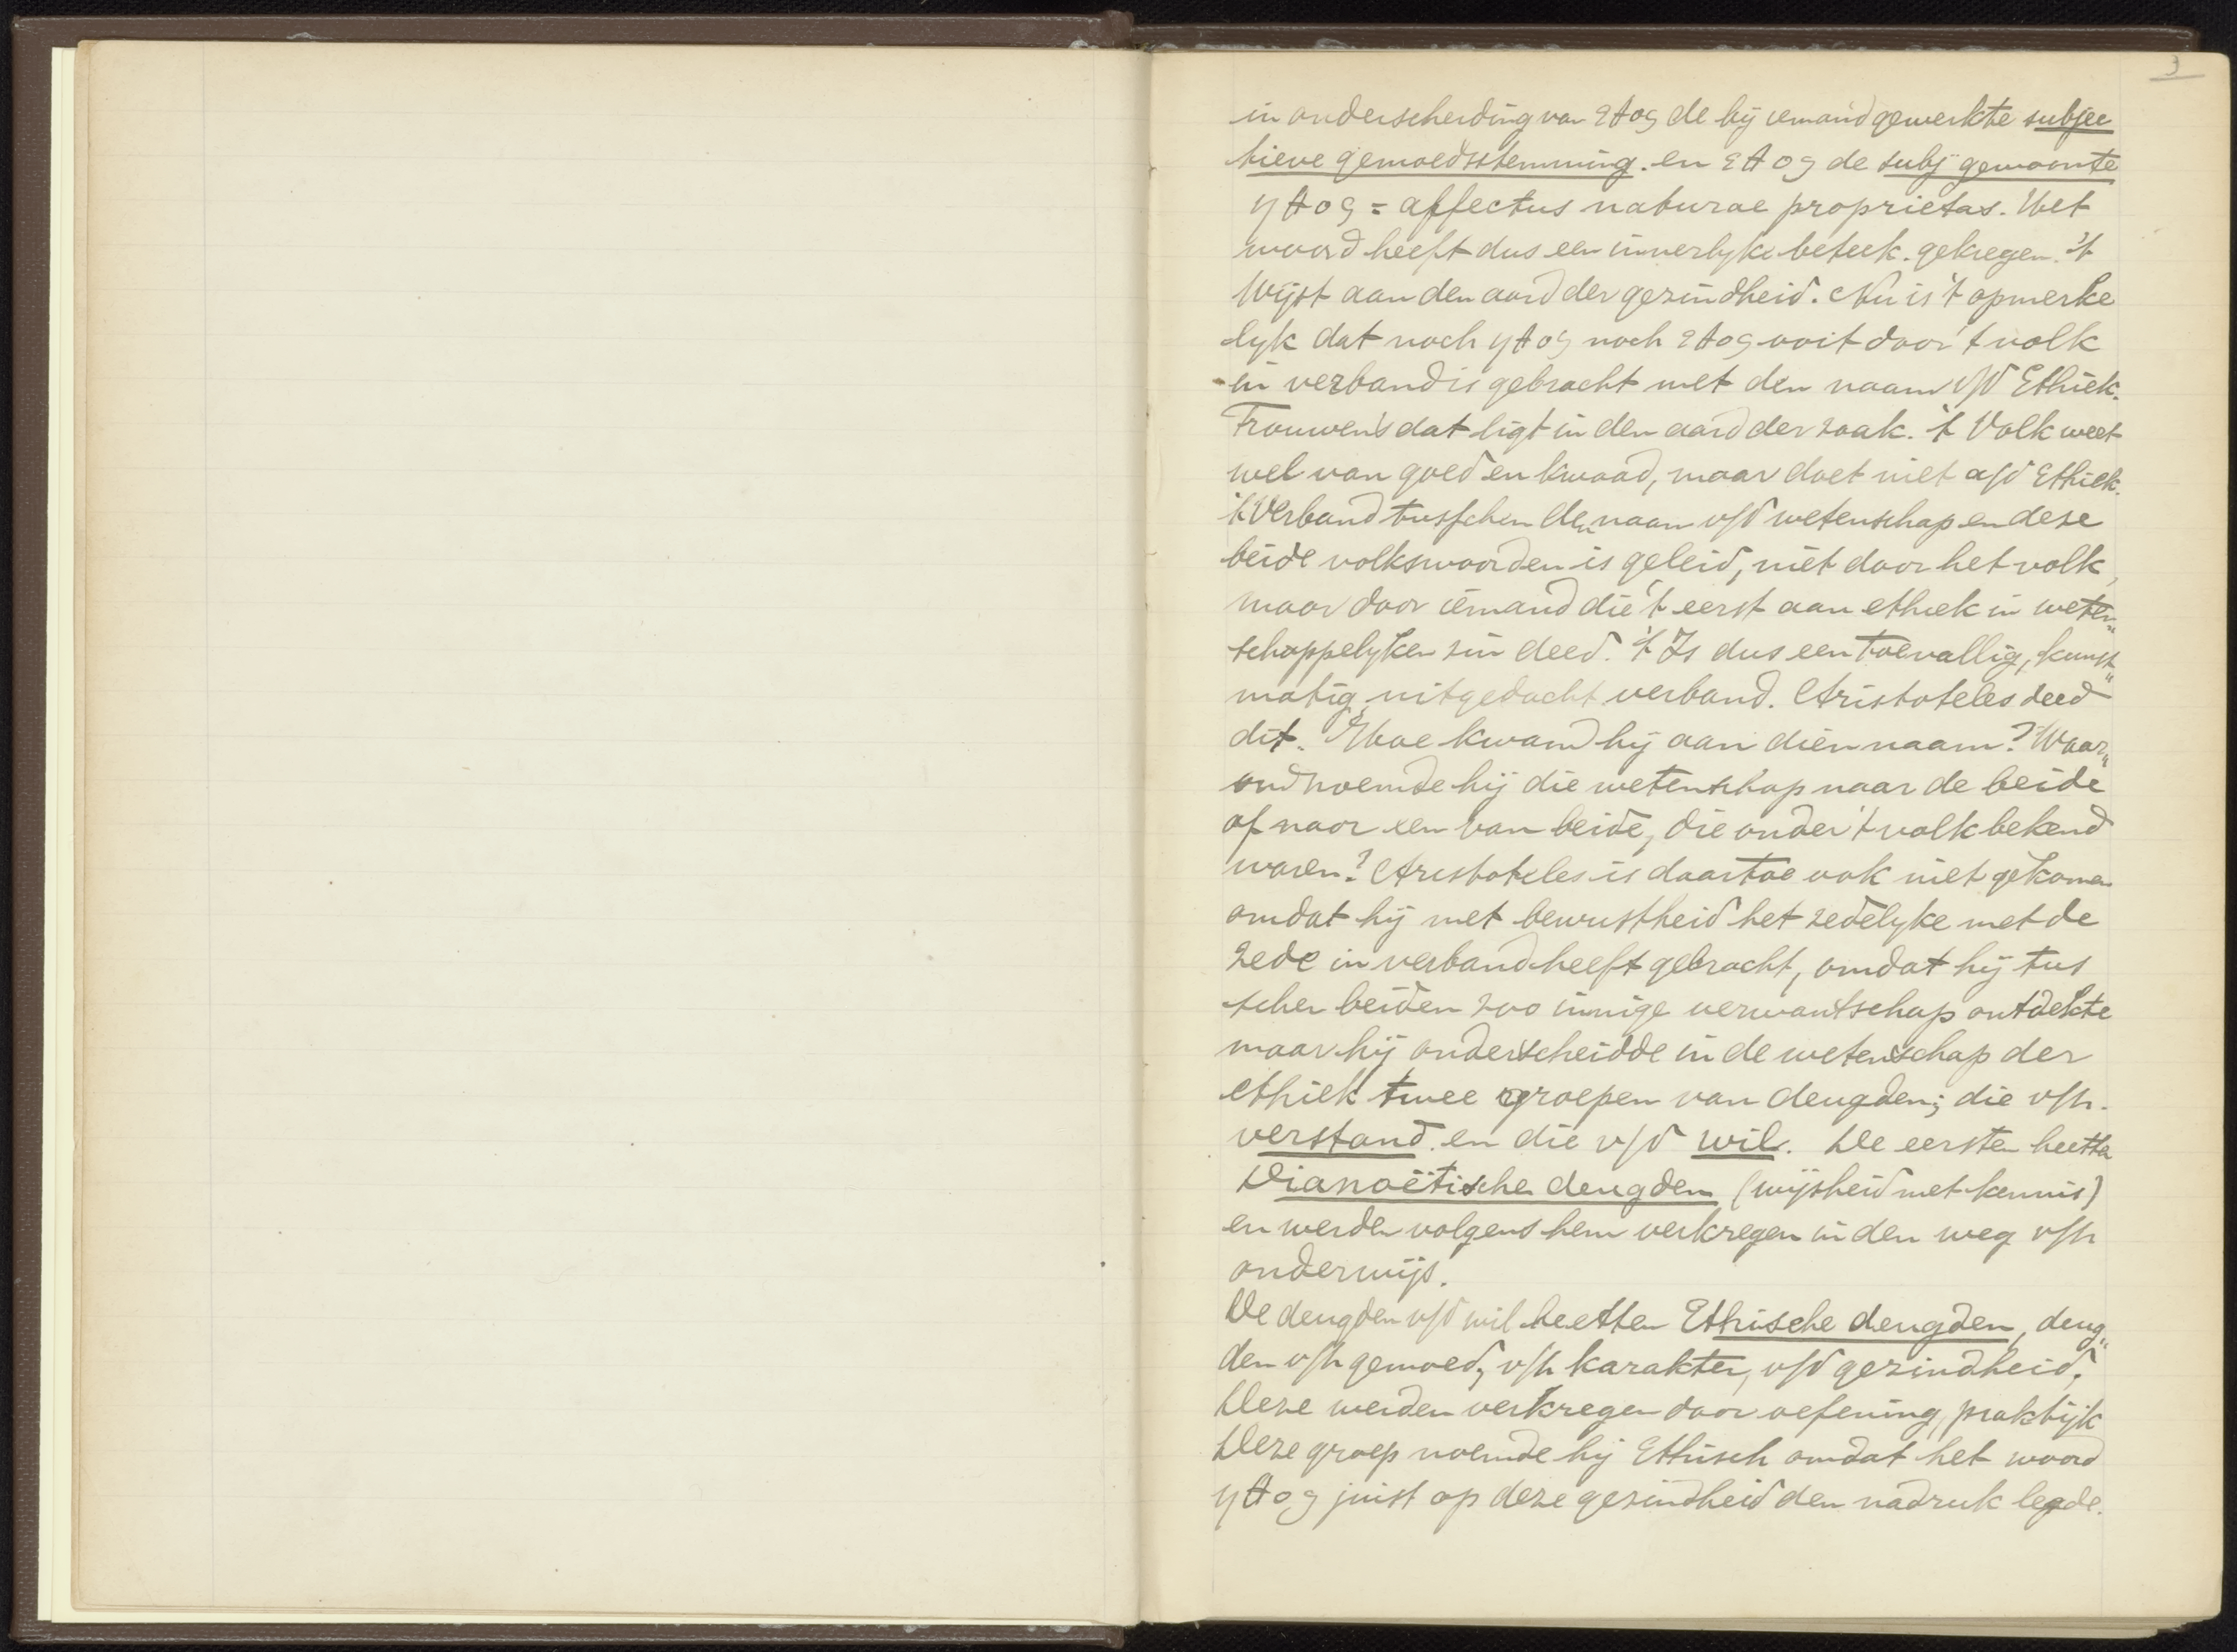 3
in onderscheiding van εθος de bij iemand gewerkte subjec
tieve gemoedsstemming. en εθος de subj gewoonte
ηθος = affectus naturae proprietas. Het
woord heeft dus een innerlyke beteek. gekregen. 't
Wijst aan den aard der gezindheid. Nu is 't opmerke
lyk dat noch ηθος noch εθος ooit door 't volk
in verband is gebracht met den naam v/d Ethiek.
Trouwens dat ligt in den aard der zaak. 't Volk weet
wel van goed en kwaad, maar doet niet a/d Ethiek.
't Verband tusschen den naam v/d wetenschap en deze
beide volkswoorden is geleid, niet door het volk,
maar door iemand die 't eerst aan ethiek in weten„
schappelyken zin deed. 't Is dus een toevallig, kunst„
matig uitgedacht verband. Aristoteles deed
dit. Hoe kwam hij aan dien naam? Waar„
om noemde hij die wetenschap naar de beide
of naar een van beide, die onder 't volk bekend
waren? Aristoteles is daartoe ook niet gekomen
omdat hij met bewustheid het zedelyke met de
zede in verband heeft gebracht, omdat hij tus
schen beiden zoo innige verwantschap ontdekte
maar hij onderscheidde in de wetenschap der
ethiek twee groepen van deugden; die v/h.
verstand en die v/d wil. De eersten heetten
Dianoëtische deugden (wijsheid met kennis)
en werden volgens hem verkregen in den weg v/h
onderwijs.
De deugden v/d wil heetten Ethische deugden, deug„
den v/h gemoed, v/h karakter, v/d gezindheid.
Deze werden verkregen door oefening, praktijk
Deze groep noemde hij Ethisch omdat het woord
ηθος juist op deze gezindheid den nadruk legde.